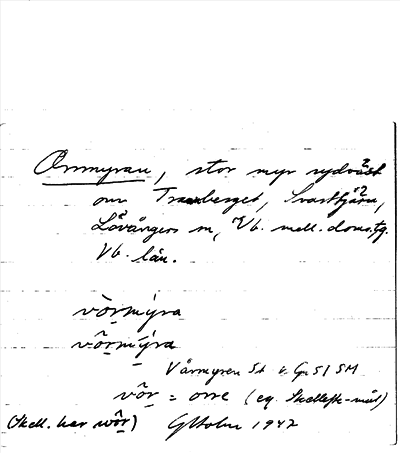 Orrmyran, stor myr sydväst
om Tranberget, Svarttjärn,
Lövångers sn, Vb. mell. doms. tg.
Vb. län.
vö̀rmýra
vö̃rmýra
Värmyren St
vö̃r = orre (eg. Skellefte-mål)
(Skell. har wö̃r) 1942